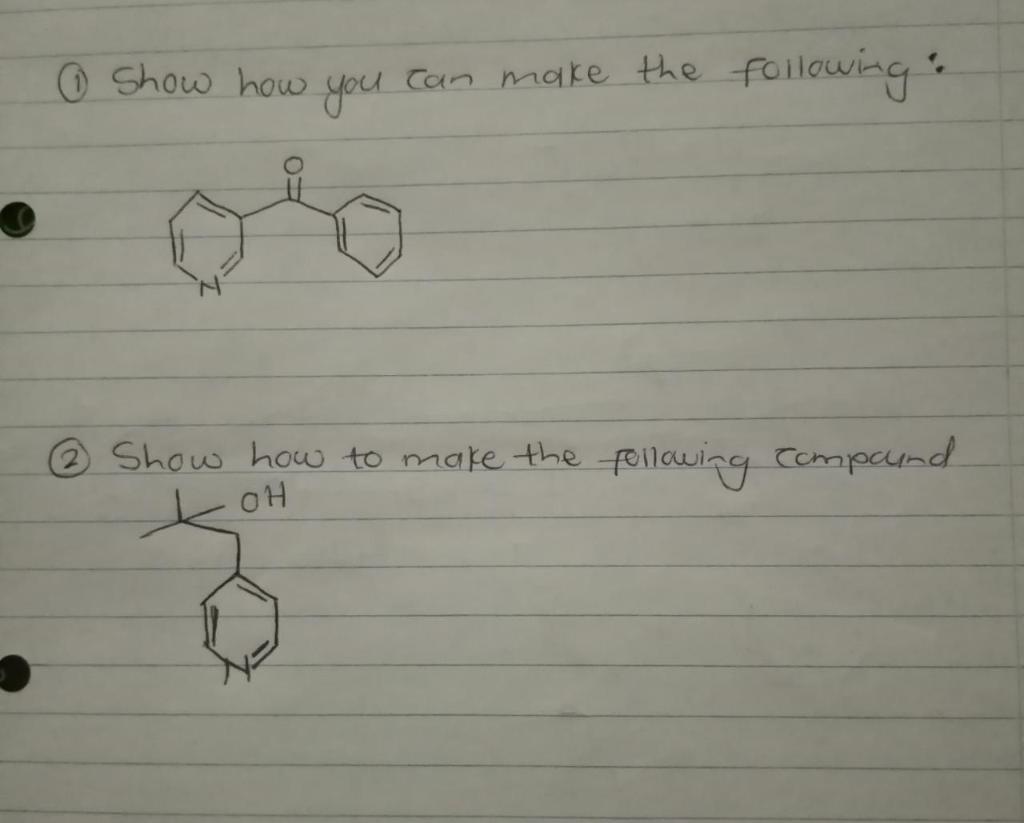 ① Show how you can make the following :
O
N
② Show how to make the following compound
OH
N